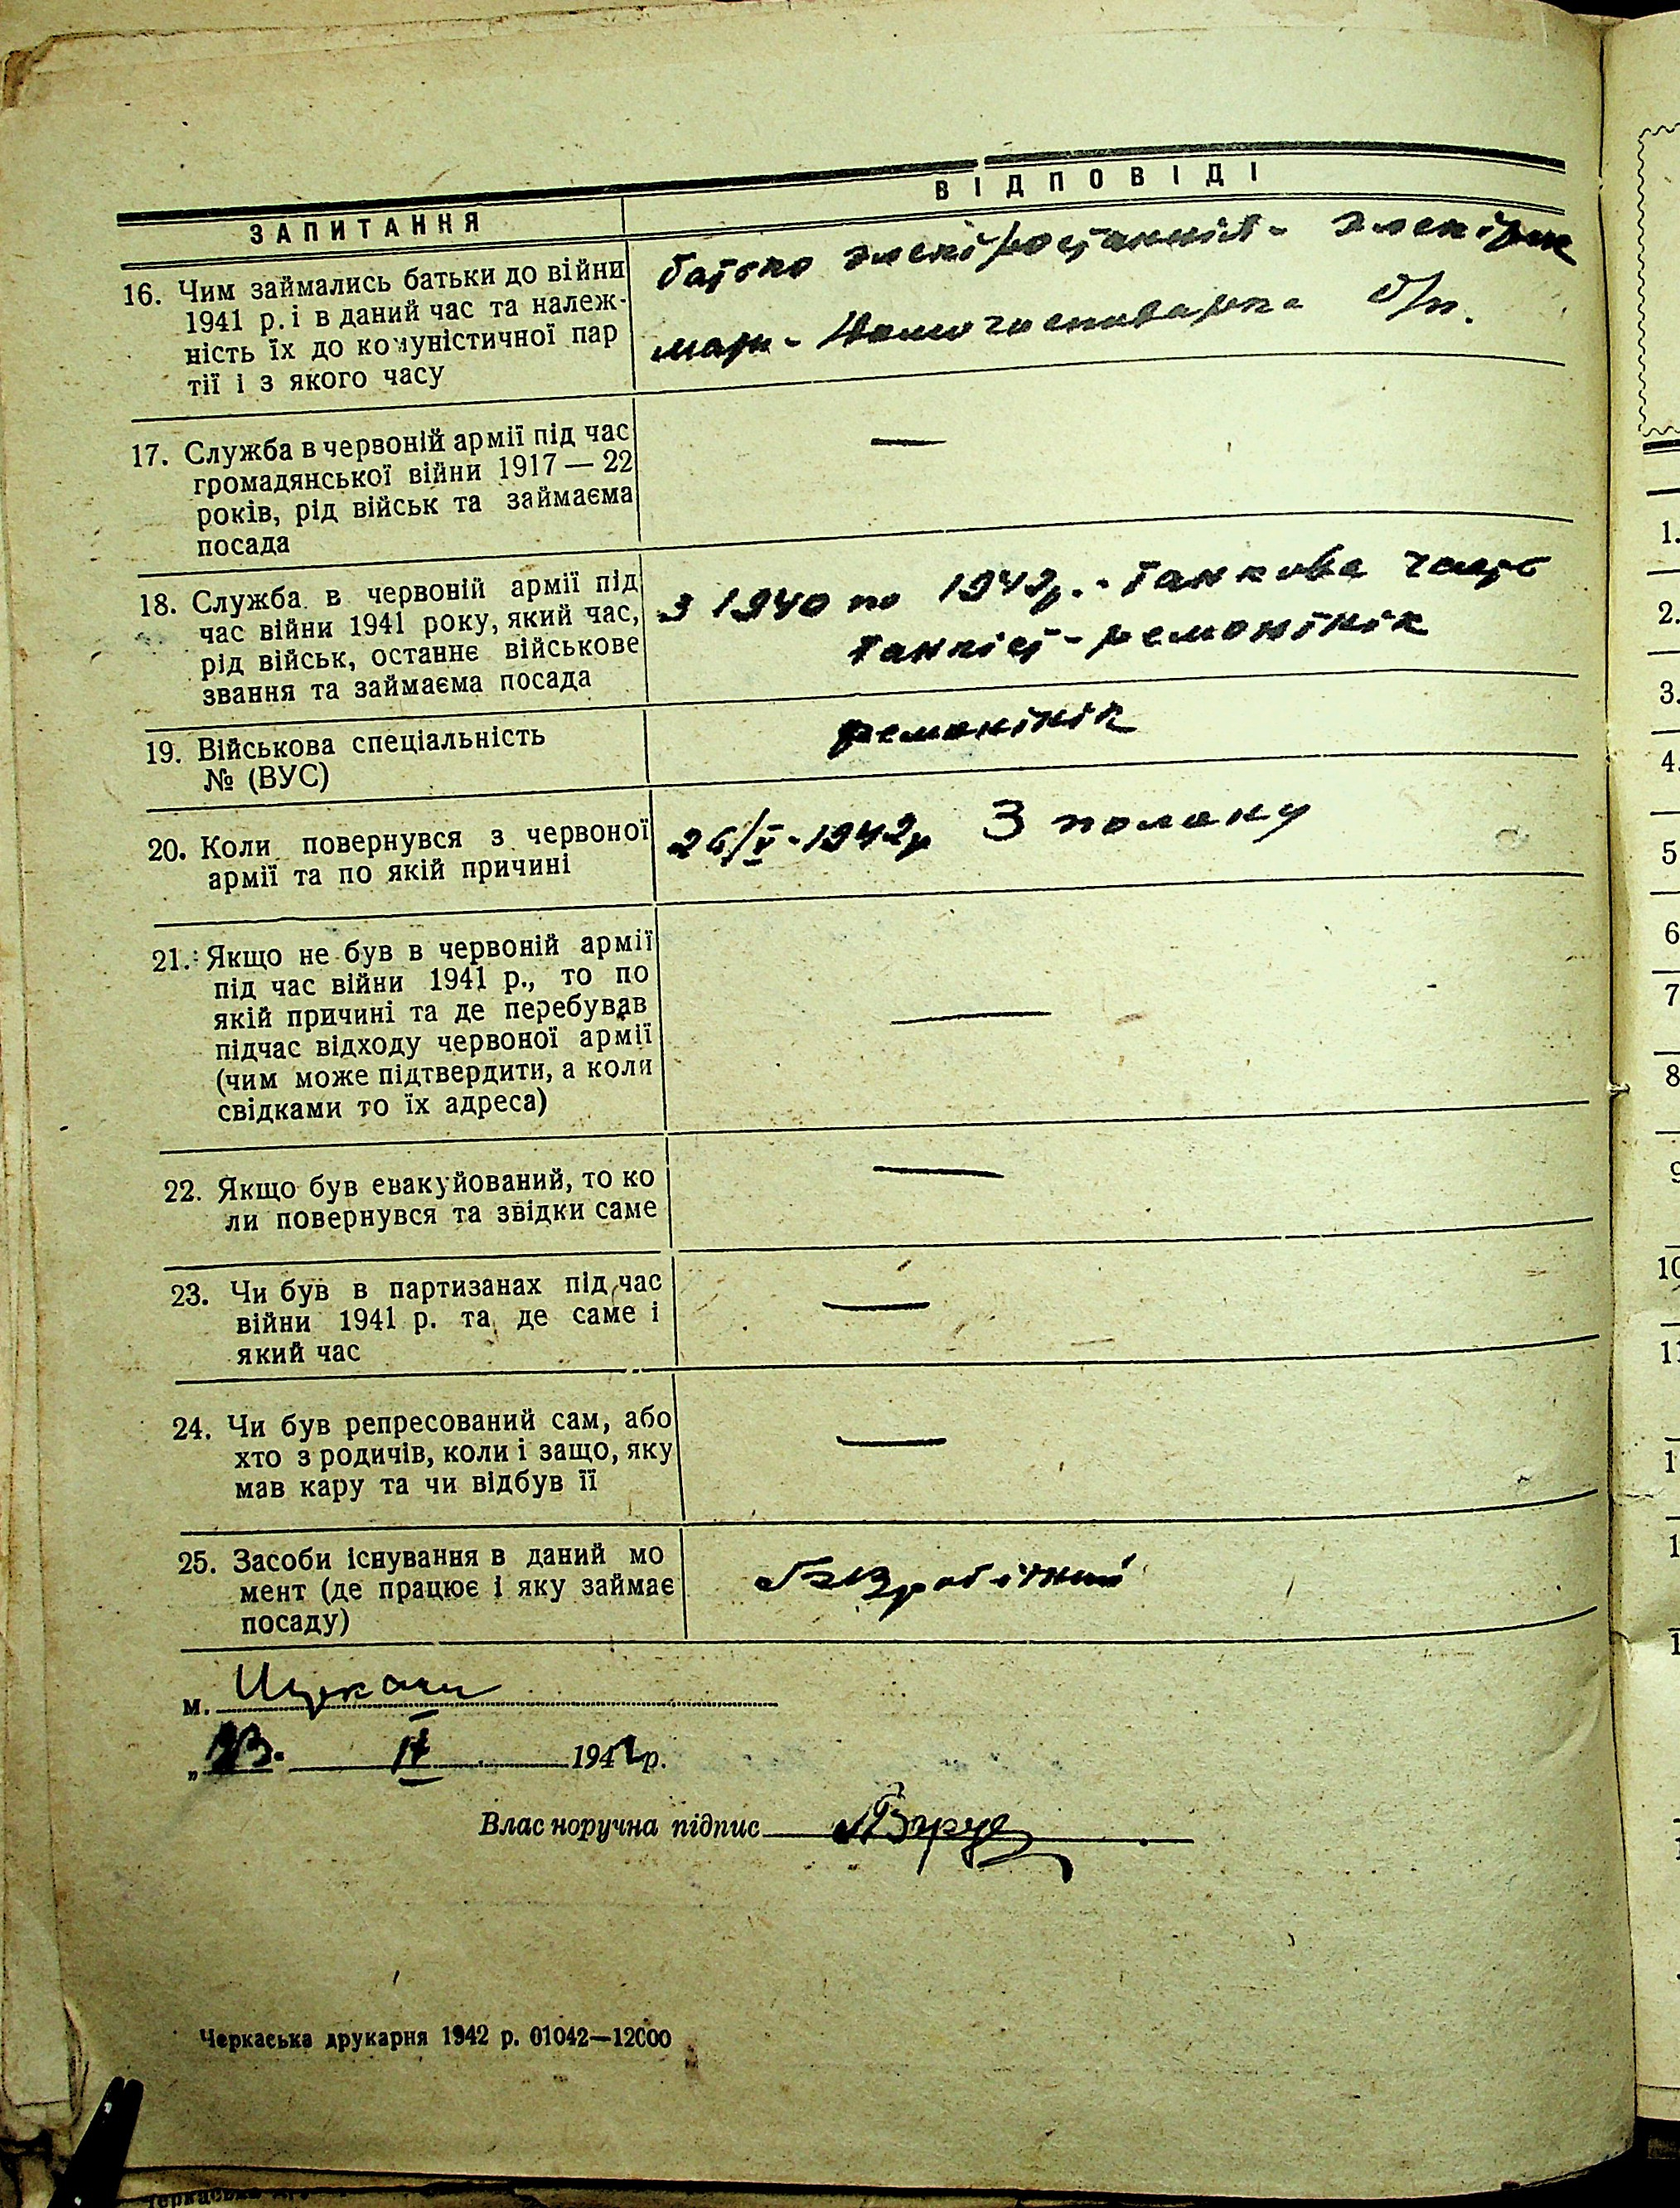 ЗАПИТАННЯ
ВІДПОВІДІ
16. Чим займались батьки до війни
1941 р. і в даний час та належ-
ність їх до комуністичної пар
тії і з якого часу
батько електростанція - электрик
мати - домогосподарка б/п.
17. Служба в червоній армії під час
громадянської війни 1917 — 22
років, рід військ та займаєма
посада
—
18. Служба в червоній армії під
час війни 1941 року, який час,
рід військ, останнє військове
звання та займаєма посада
З 1940 по 1942р. - танкова часть
танкіст - ремонтнік
19. Військова спеціальність
№ (ВУС)
ремонтнік
20. Коли повернувся з червоної
армії та по якій причині
26/V-1942р З полону
21. Якщо не був в червоній армії
під час війни 1941 р., то по
якій причині та де перебував
підчас відходу червоної армії
(чим може підтвердити, а коли
свідками то їх адреса)
—
22. Якщо був евакуйований, то ко
ли повернувся та звідки саме
—
23. Чи був в партизанах під час
війни 1941 р. та де саме і
який час
—
24. Чи був репресований сам, або
хто з родичів, коли і защо, яку
мав кару та чи відбув її
—
25. Засоби існування в даний мо
мент (де працює і яку займає
посаду)
Безробітний
м.
194 р.
Власноручна підпис
Черкаська друкарня 1942 р. 01042—12000
1.
2.
3.
4.
5
6
7
8
9
10
11